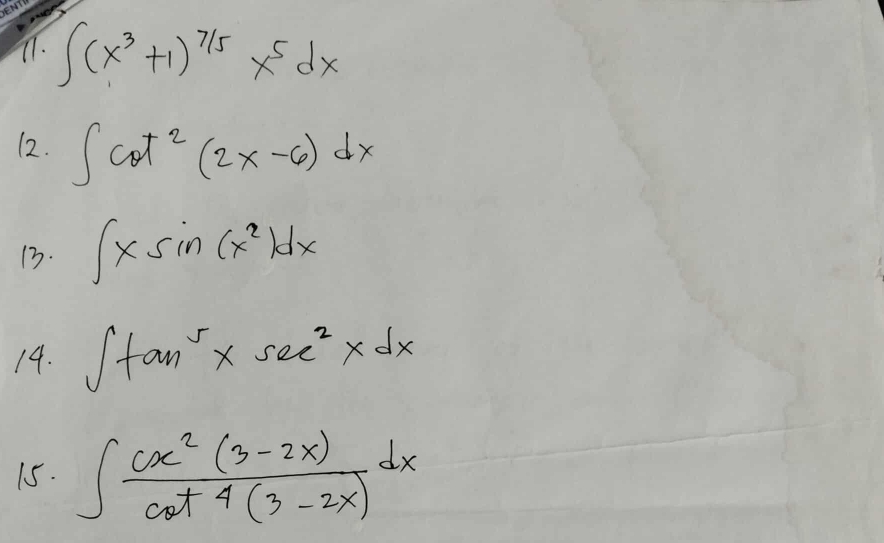 11. ∫(x³+1)^7/5 x⁵ dx
12. ∫cot² (2x-6) dx
13. ∫x sin (x²)dx
14. ∫tan⁵ x sec² x dx
15. ∫ csc² (3-2x) / cot⁴ (3-2x) dx